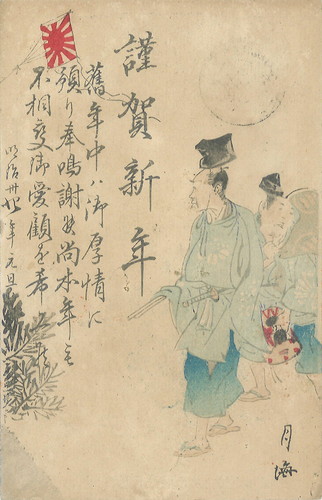 謹賀新年
舊年中ハ御厚情に
預り奉鳴謝候尚本年も
不相変御愛顧を希
明治卅 年元旦
月海